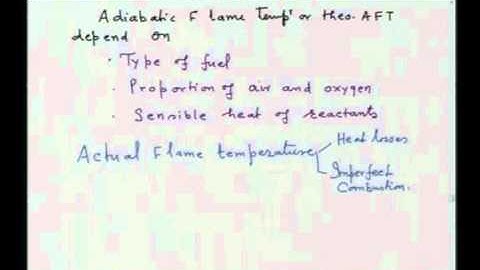 Adiabatic Flame Temp' or theo. AFT
depend on
· Type of fuel
· Proportion of air and oxygen
· Sensible heat of reactants
Actual Flame temperature
Heat losses
Imperfect
Combustion.